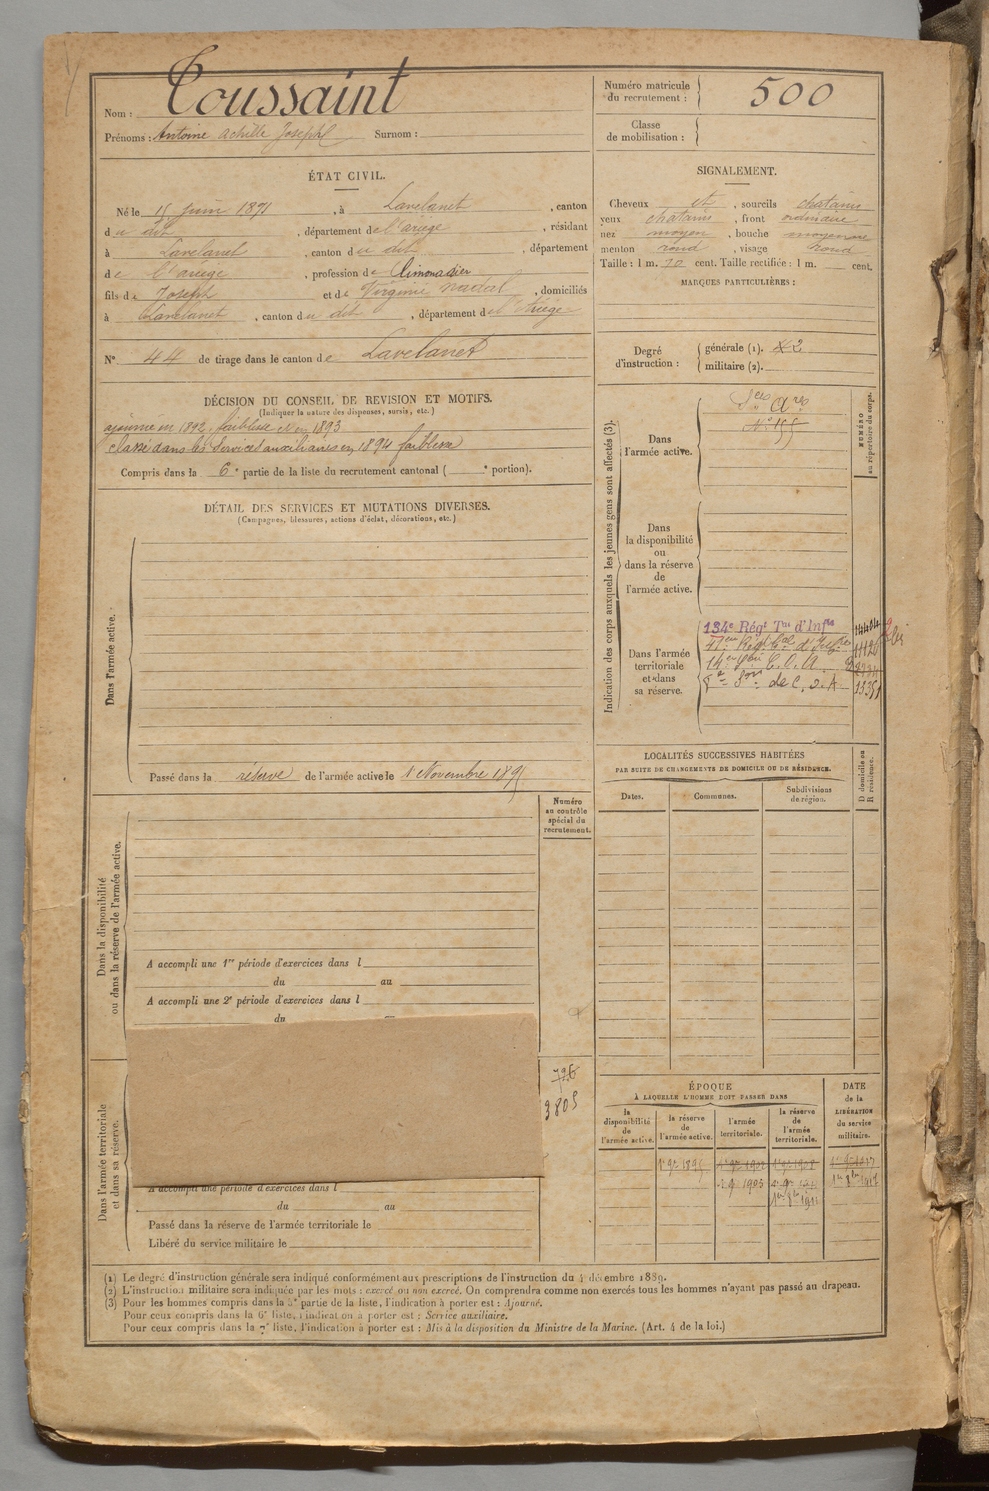 Nom : Toussaint
Prénoms : Antoine Achille Joseph Surnom :
Numéro matricule du recrutement : 500
Classe de mobilisation :
ÉTAT CIVIL.
Né le 15 juin 1871, à Lavelanet, canton
du dit, département de l'ariège, résidant
à Lavelanet, canton du dit, département
de l'ariège, profession de limonadier
fils de Joseph et de Virginie Nadal, domiciliés
à Lavelanet, canton du dit, département de l'Ariège
N° 44 de tirage dans le canton de Lavelanet
SIGNALEMENT.
Cheveux et, sourcils chatains
yeux chatains, front ordinaire
nez moyen, bouche moyenne
menton rond, visage rond
Taille : 1 m. 70 cent. Taille rectifiée : 1 m. cent.
MARQUES PARTICULIÈRES :
Degré d'instruction :
générale (1). 2
militaire (2).
DÉCISION DU CONSEIL DE REVISION ET MOTIFS.
(Indiquer la nature des dispenses, sursis, etc.)
ajourné en 1892, faiblesse 1893
classé dans les services auxiliaires en 1894 faiblesse
Compris dans la 6e partie de la liste du recrutement cantonal ( e portion).
DÉTAIL DES SERVICES ET MUTATIONS DIVERSES.
(Campagnes, blessures, actions d'éclat, décorations, etc.)
Dans l'armée active.
Passé dans la réserve de l'armée active le 1 Novembre 1895
Indication des corps auxquels les jeunes gens sont affectés (3).
NUMÉRO au répertoire du corps.
Dans l'armée active.
Sces Ares
N° 155
Dans la disponibilité ou dans la réserve de l'armée active.
Dans l'armée territoriale et dans sa réserve.
134e Régt Tal d'Infie
14e Son C. O. A.
Son de C. O. A.
LOCALITÉS SUCCESSIVES HABITÉES
PAR SUITE DE CHANGEMENTS DE DOMICILE OU DE RÉSIDENCE.
D domicile ou R résidence.
Dates. Communes. Subdivisions de région.
Numéro au contrôle spécial du recrutement.
Dans la disponibilité ou dans la réserve de l'armée active.
A accompli une 1re période d'exercices dans l
du au
A accompli une 2e période d'exercices dans l
du
796
3805
Dans l'armée territoriale et dans sa réserve.
A accompli une période d'exercices dans l
du au
Passé dans la réserve de l'armée territoriale le
Libéré du service militaire le
ÉPOQUE
À LAQUELLE L'HOMME DOIT PASSER DANS
DATE de la LIBÉRATION du service militaire.
la disponibilité de l'armée active.
la réserve de l'armée active.
l'armée territoriale.
la réserve de l'armée territoriale.
1 9bre 1895
(1) Le degré d'instruction générale sera indiqué conformément aux prescriptions de l'instruction du 4 décembre 1889.
(2) L'instruction militaire sera indiquée par les mots : exercé ou non exercé. On comprendra comme non exercés tous les hommes n'ayant pas passé au drapeau.
(3) Pour les hommes compris dans la 5e partie de la liste, l'indication à porter est : Ajourné.
Pour ceux compris dans la 6e liste, l'indication à porter est : Service auxiliaire.
Pour ceux compris dans la 7e liste, l'indication à porter est : Mis à la disposition du Ministre de la Marine. (Art. 4 de la loi.)